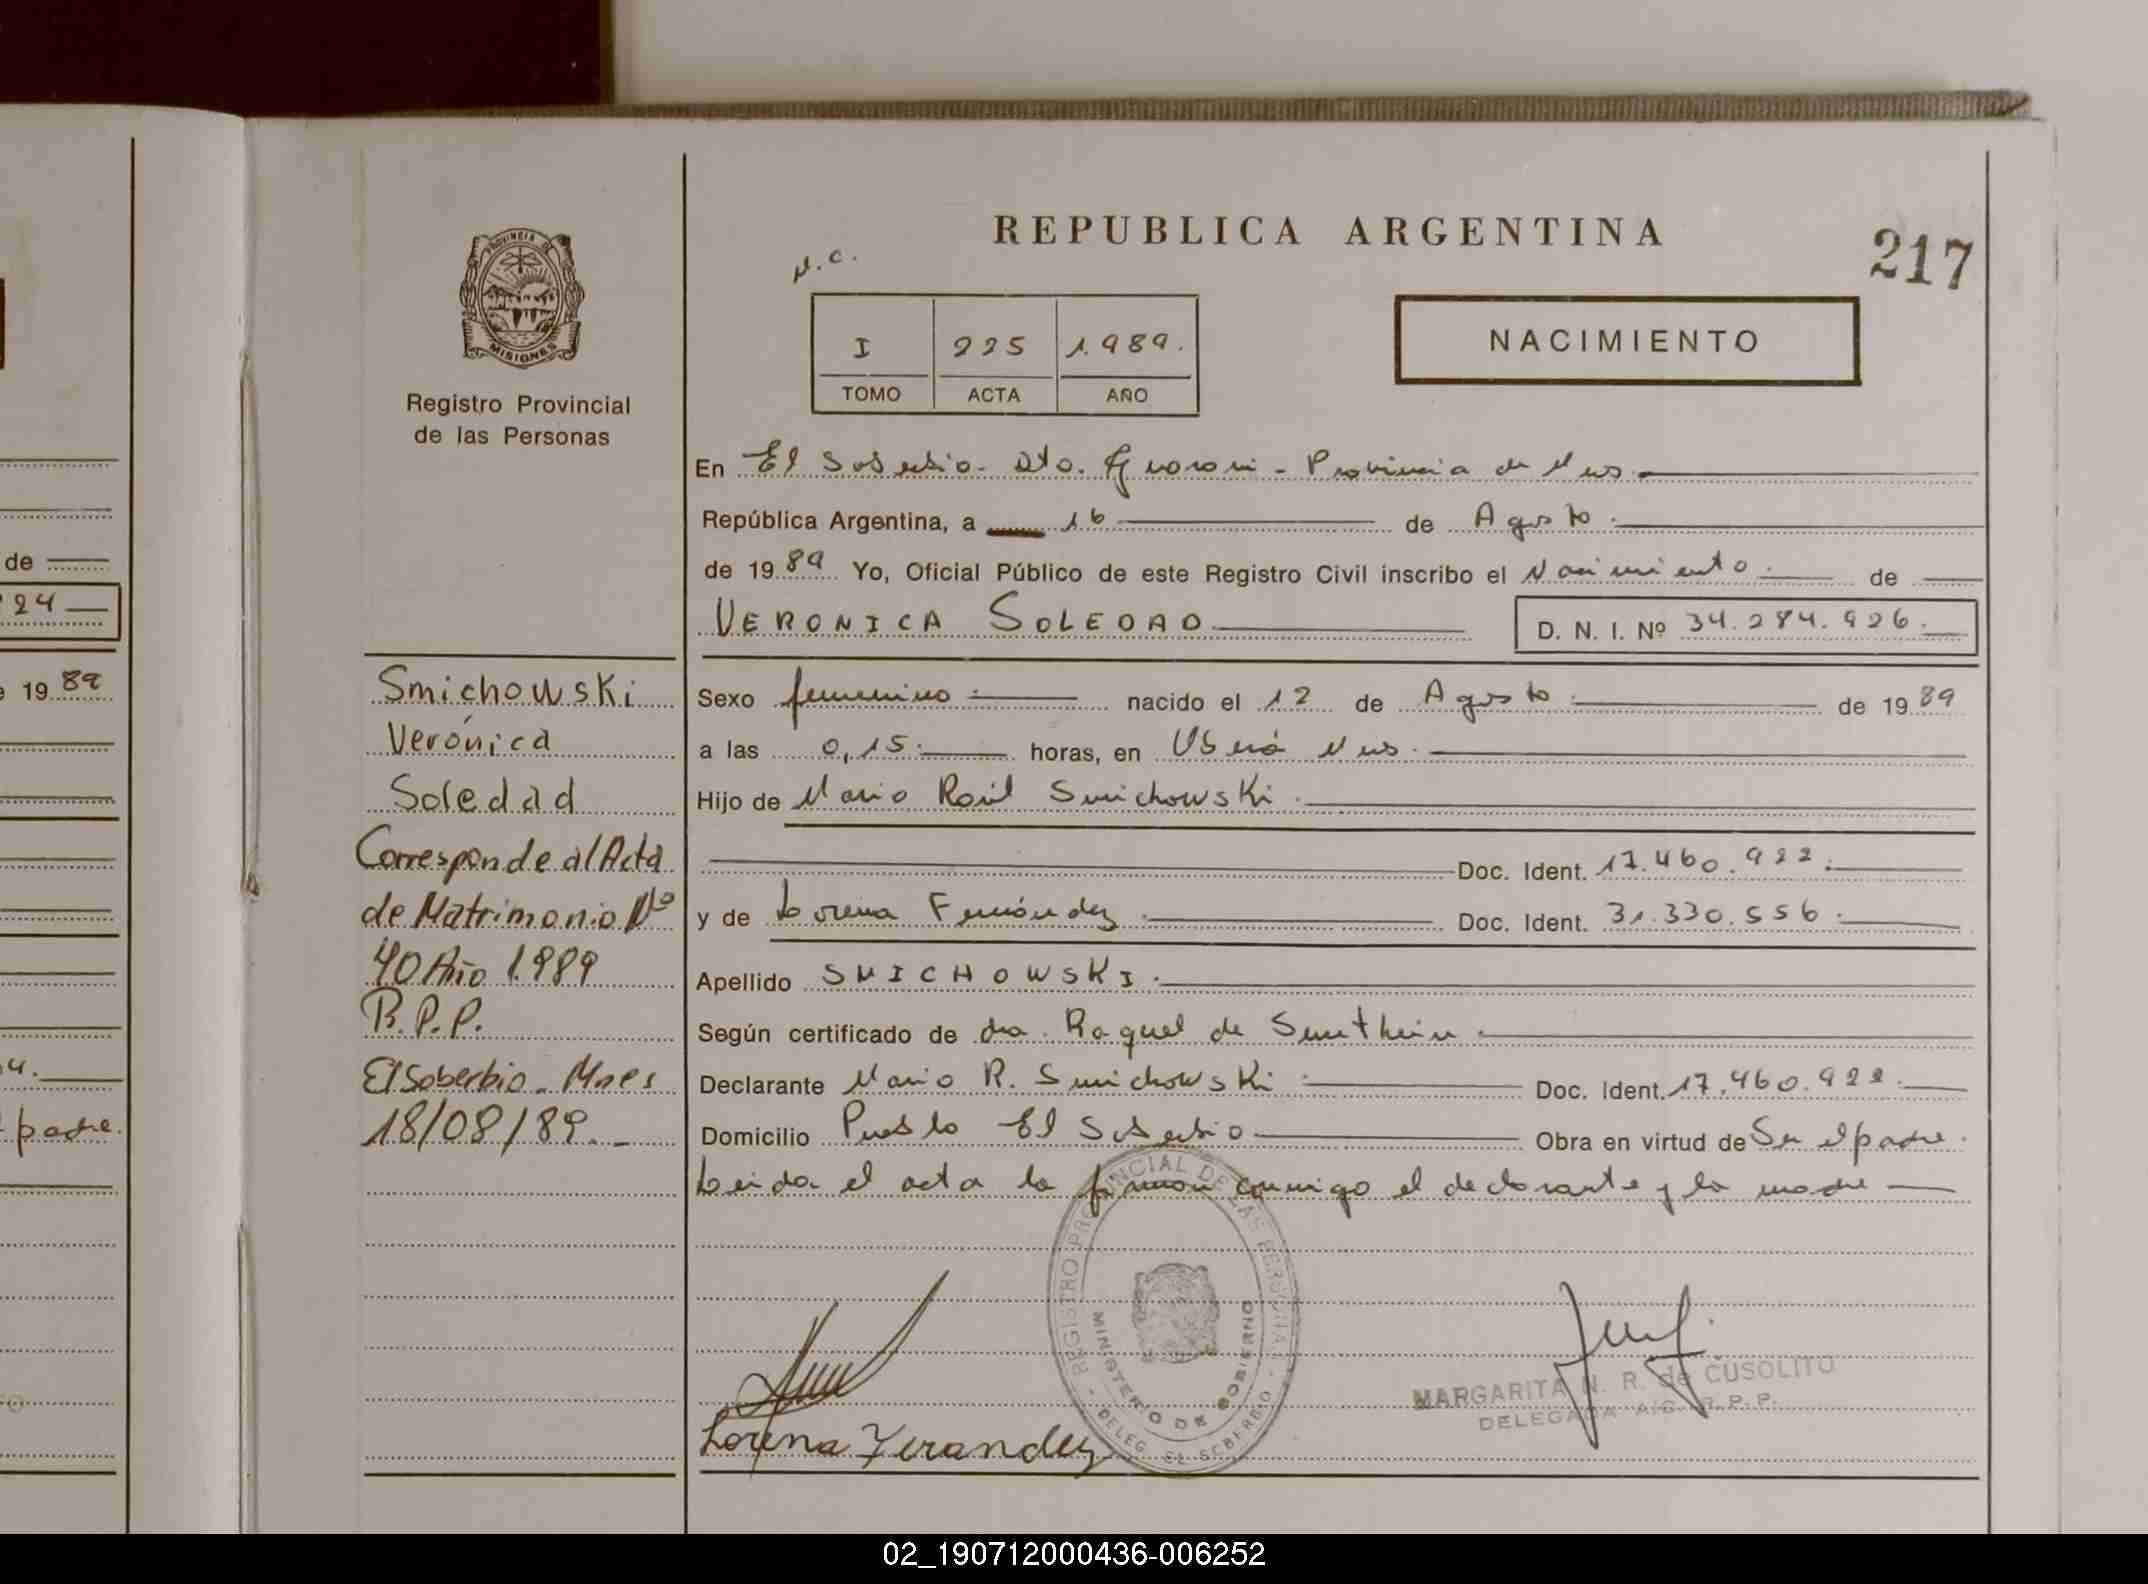 REPUBLICA ARGENTINA
217
N.C.
I 225 1.989.
TOMO ACTA AÑO
NACIMIENTO
PROVINCIA DE
MISIONES
Registro Provincial
de las Personas
En El Soberbio - Dto. Guarani - Provincia de Mnes
República Argentina, a 16 de Agosto
de 1989 Yo, Oficial Público de este Registro Civil inscribo el Nacimiento de
VERONICA SOLEDAD D. N. I. Nº 34.284.926.
Sexo femenino nacido el 12 de Agosto de 1989
a las 0,15 horas, en Oberá Mnes.
Hijo de Mario Raúl Smichowski
Doc. Ident. 17.460.922.
y de Lorena Fernández Doc. Ident. 31.330.556.
Apellido SMICHOWSKI.
Según certificado de dra. Raquel de
Declarante Mario R. Smichowski Doc. Ident. 17.460.922.
Domicilio Pueblo El Soberbio Obra en virtud de Ser el padre.
Leida el acta la firman conmigo el declarante y la madre
Smichowski
Verónica
Soledad
Corresponde al Acta
de Matrimonio Nº
40 Año 1.989
R.P.P.
El Soberbio - Mnes
18/08/89.-
REGISTRO PROVINCIAL DE LAS PERSONAS
MINISTERIO DE GOBIERNO
DELEG. EL SOBERBIO
Lorena Ferandez
MARGARITA N. R. de CUSOLITO
DELEGADA A/C R.P.P.
de
24
e 1989
4.
padre.
02_190712000436-006252